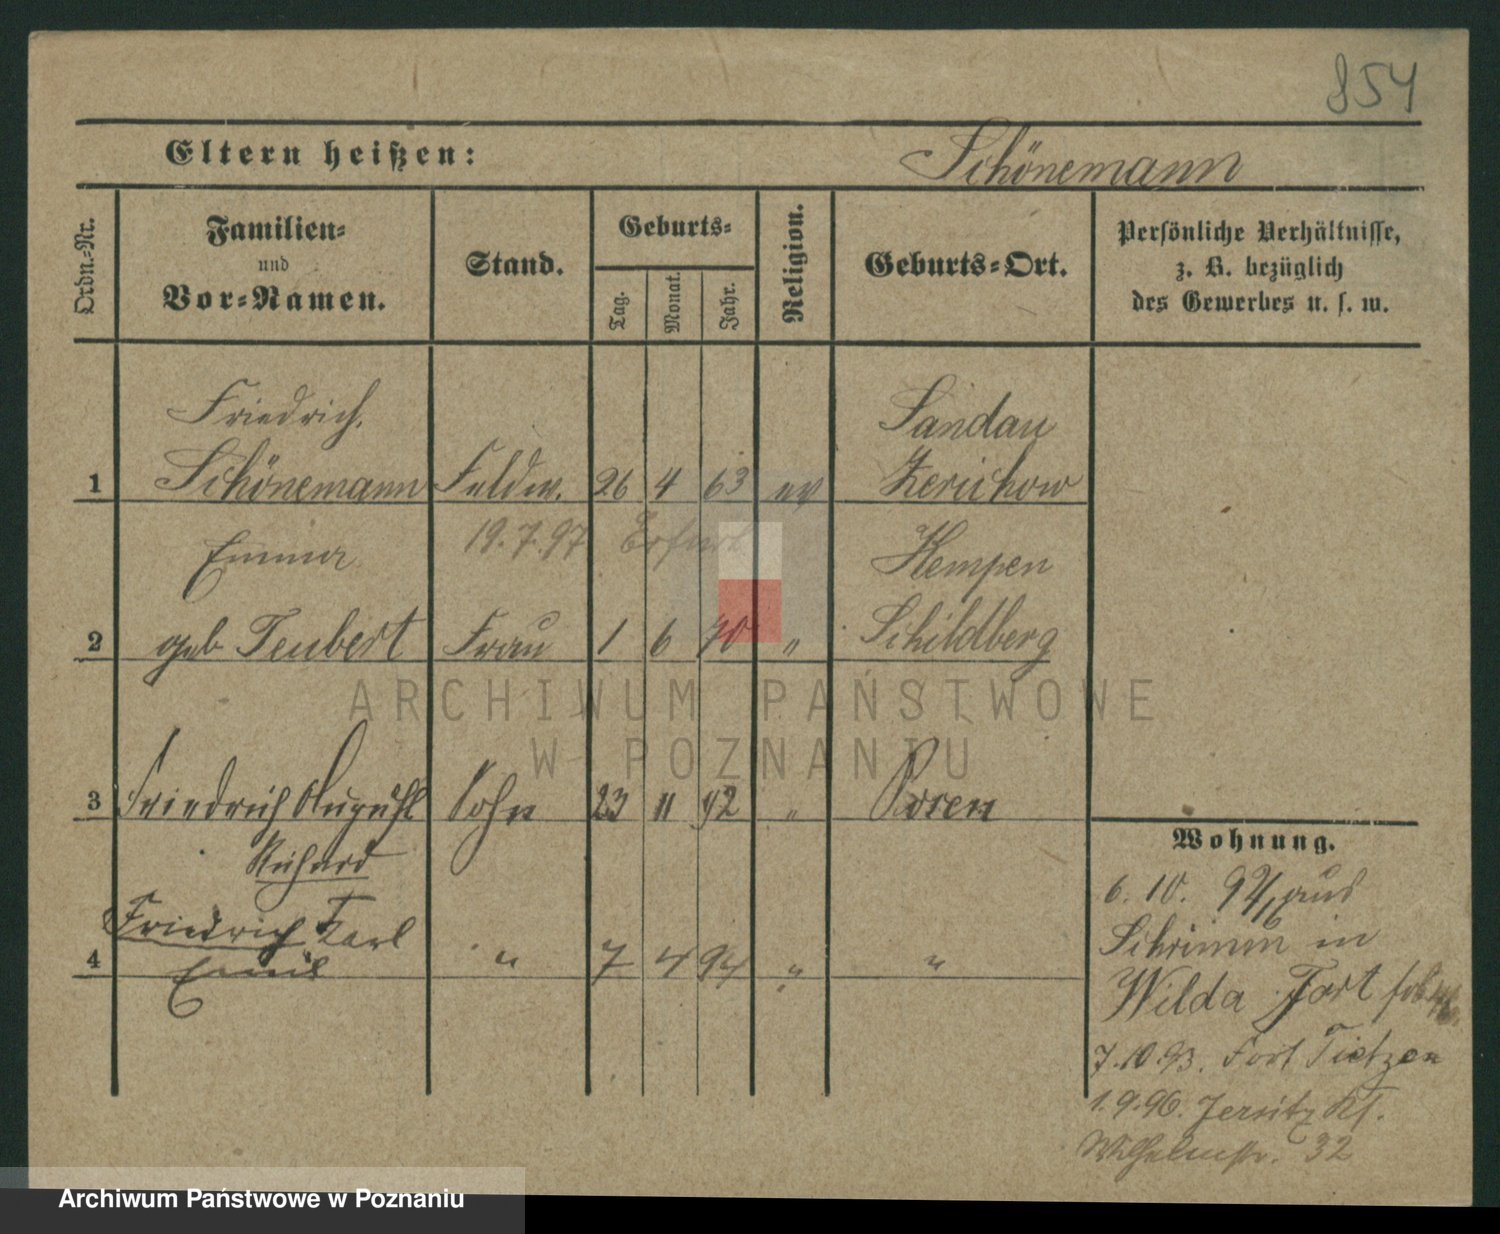 854
Eltern heißen:
Schönemann
Ordn.-Nr.
Familien-
und
Vor-Namen.
Stand.
Geburts-
Tag.
Monat.
Jahr.
Religion.
Geburts-Ort.
Persönliche Verhältnisse,
z. B. bezüglich
des Gewerbes u. s. w.
Friedrich,
Sandau
1 Schönemann Feldw. 26 4 63 ev Jerichow
Emma
19.7.97 Erfurt
Kempen
2 geb Teubert Frau 1 6 70 " Schildberg
3 Friedrich August Sohn 23 11 92 " Posen
Richard
Friedrich Karl
4 Emil " 7 4 94 " "
Wohnung.
6. 10. 92 aus
Schrimm in
Wilda Fort
7.10.93. Fort Tietzen
1.9.96. Jersitz Kl.
Wilhelmstr. 32
ARCHIWUM PAŃSTWOWE
W POZNANIU
Archiwum Państwowe w Poznaniu